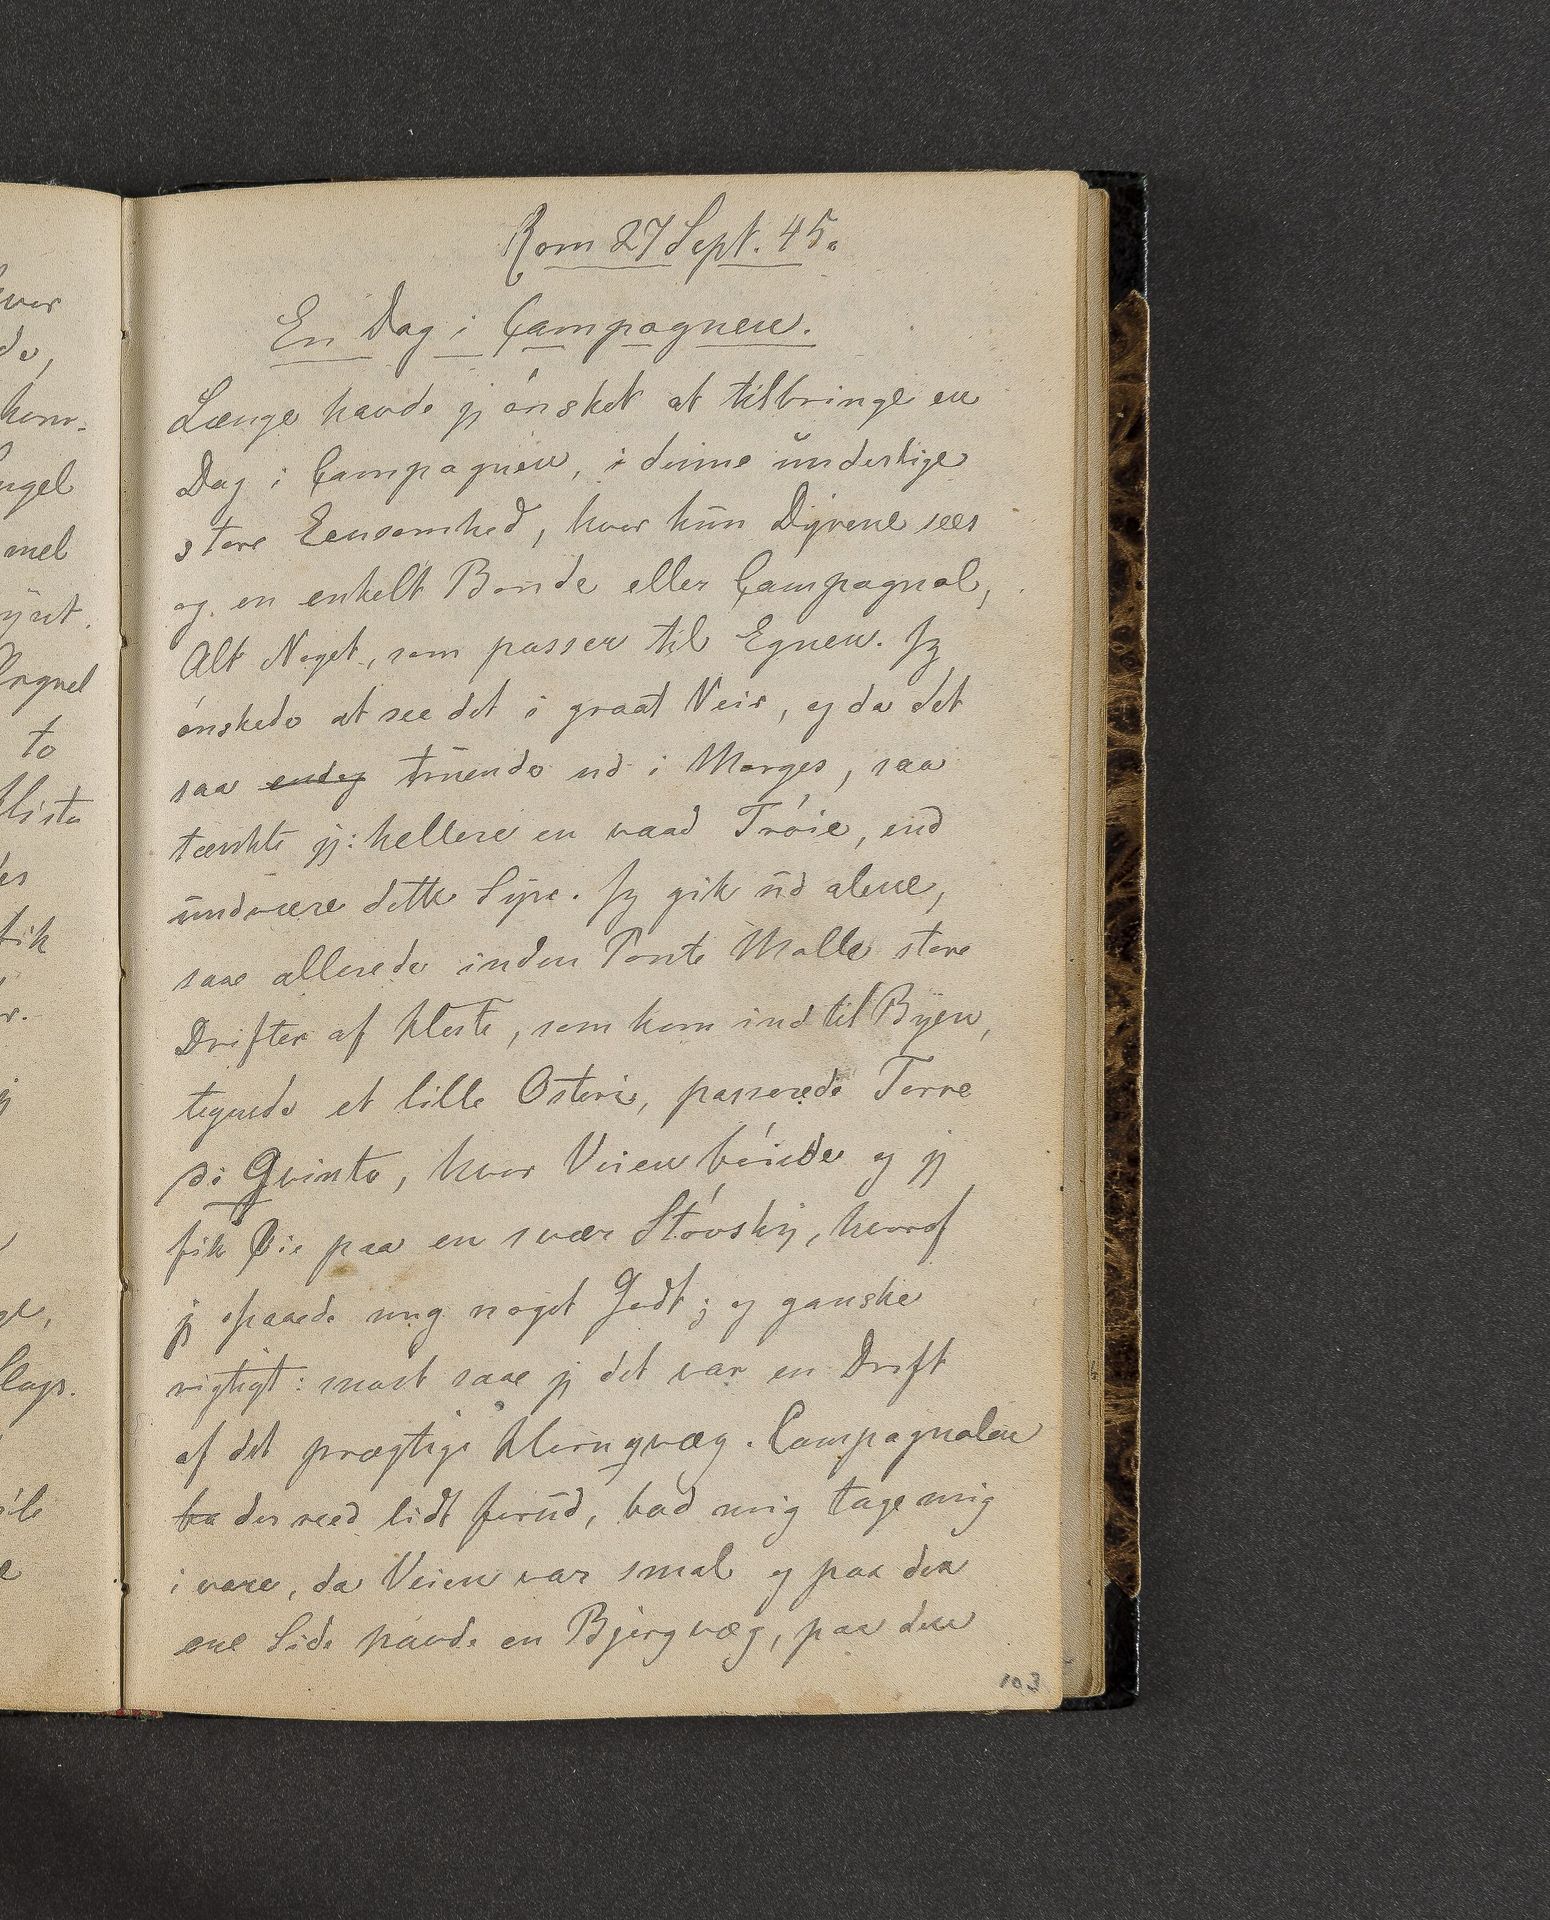 Rom 27 Sept. 45.
En Dag i Campagnen.
Længe havde jeg ónsket at tilbringe en
Dag i Campagnen, i denne underlige
store Eensomhed, hvor kun Dyrene sees
og en enkelt Bonde eller Campagnol,
Alt Noget, som passer til Egnen. Jeg
ónskede at see det i graat Veir, og da det
saa endog truende ud i Morges, saa
tænkte jeg: hellere en vaad Tróie, end
undvære dette Syn. Jeg gik ud alene,
saae allerede inden Ponte Molle store
Drifter af Heste, som kom ind til Byen,
tegnede et lille Osteri, passerede Torre
di Qvinto, hvor Veien bóiede og jeg
fik Øie paa en svær Stóvsky, hvoraf
jeg spaaede mig noget Godt; og ganske
rigtigt: snart saae jeg det var en Drift
af det prægtige Hornqvæg. Campagnolen
ba der reed lidt forud, bad mig tage mig
i vare, da Veien var smal og paa den
ene Side havde en Bjergvæg, paa den
103
ver
de,
kom-
ngel
mel
to
ik
r.
ge,